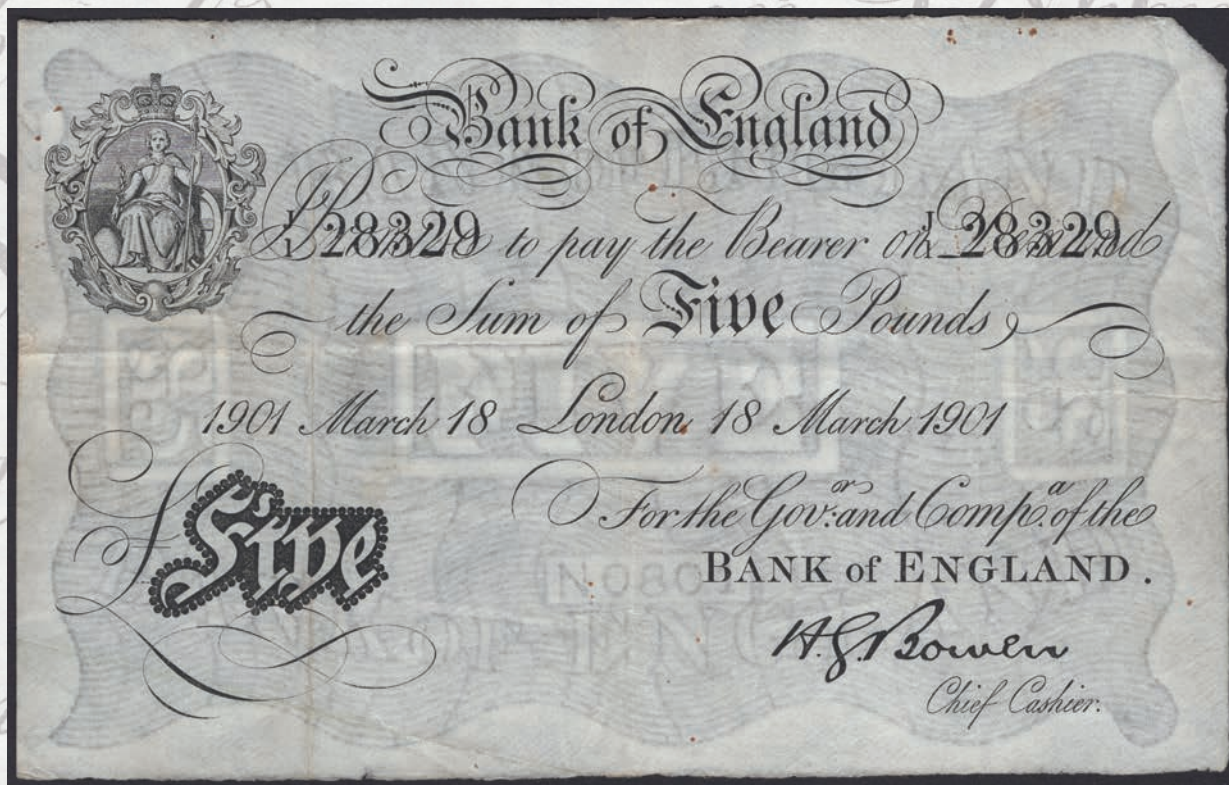 Bank of England
28329 to pay the Bearer on 28329
the Sum of Five Pounds
1901 March 18 London 18 March 1901
For the Gov.r and Comp.a of the
Five
BANK of ENGLAND.
H.G. Bowen
Chief Cashier.